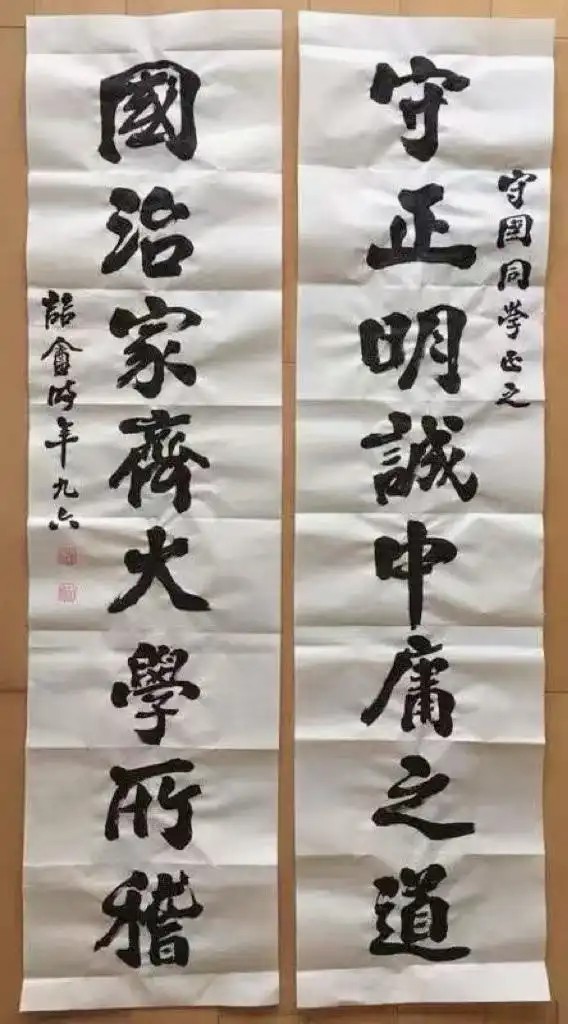 守正明誠中庸之道
守国同学正之
國治家齊大學所稽
時年九六